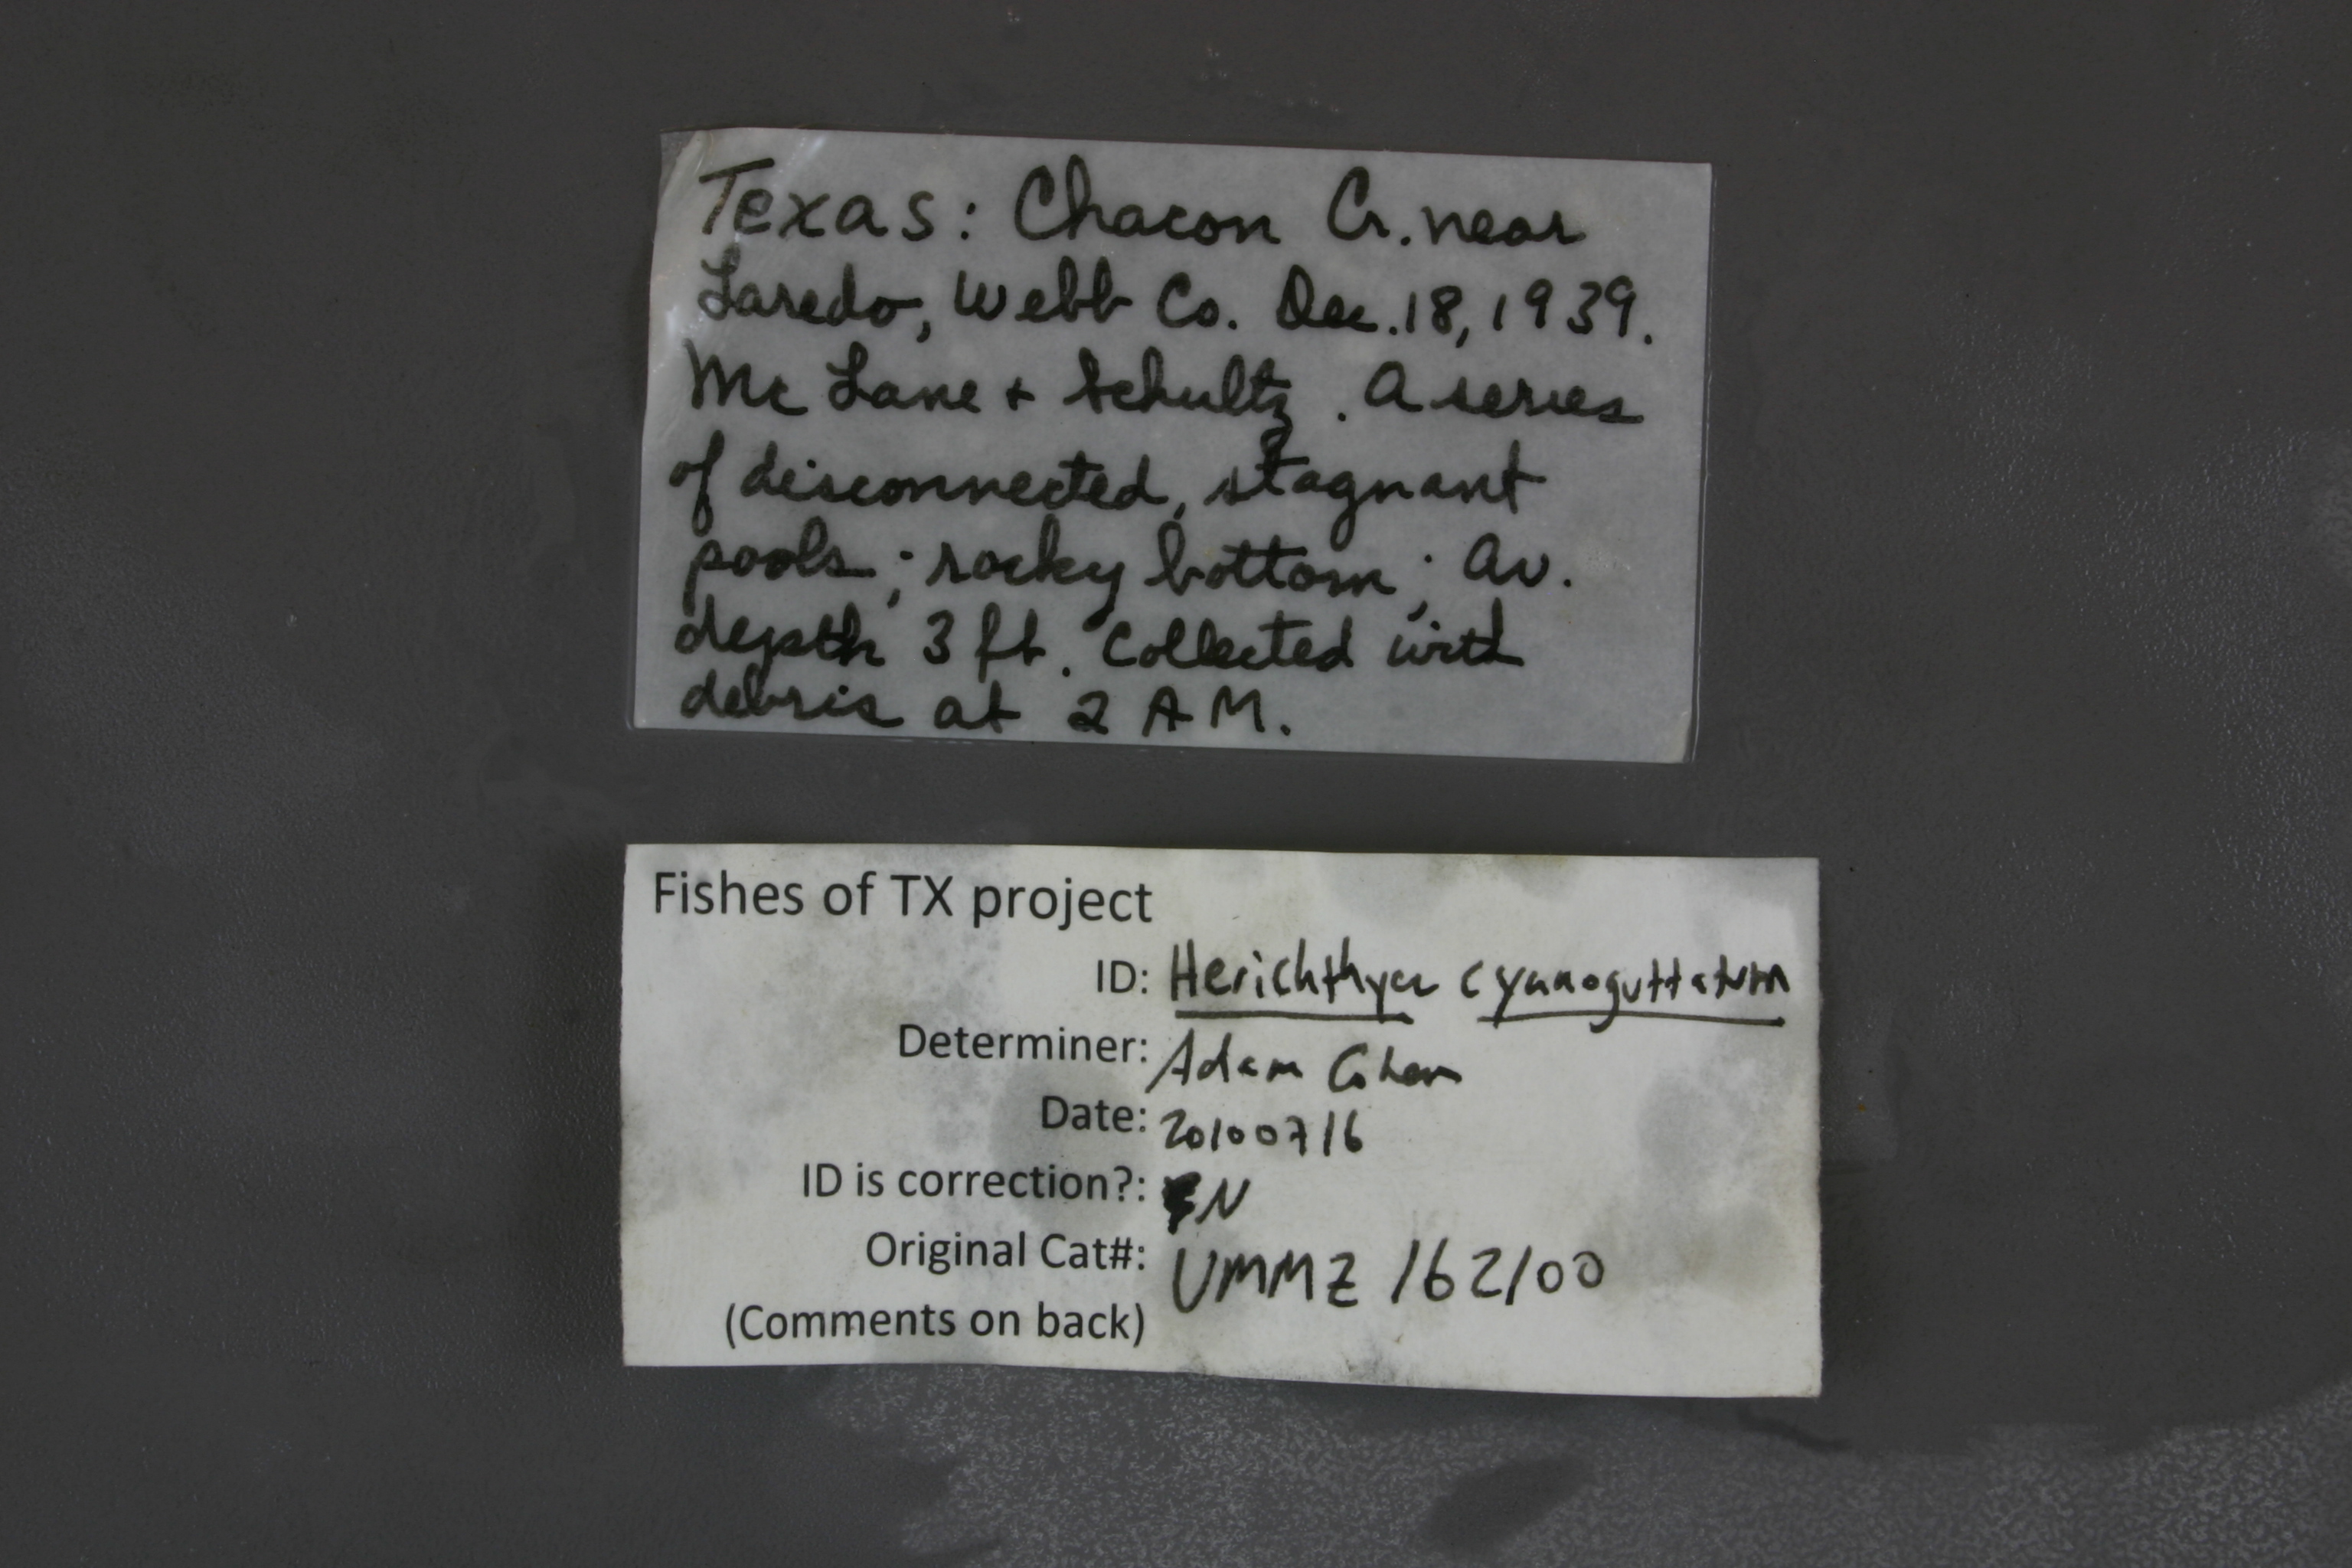 Texas: Chacon Cr. near
Laredo, Webb Co. Dec. 18, 1939.
Mc Lane + Schultz. A series
of disconnected, stagnant
pools; rocky bottom; Av.
depth 3 ft. Collected with
debris at 2 AM.
Fishes of TX project
ID: Herichthys cyanoguttatum
Determiner: Adam Cohen
Date: 20100716
ID is correction?: N
Original Cat#: UMMZ 162100
(Comments on back)